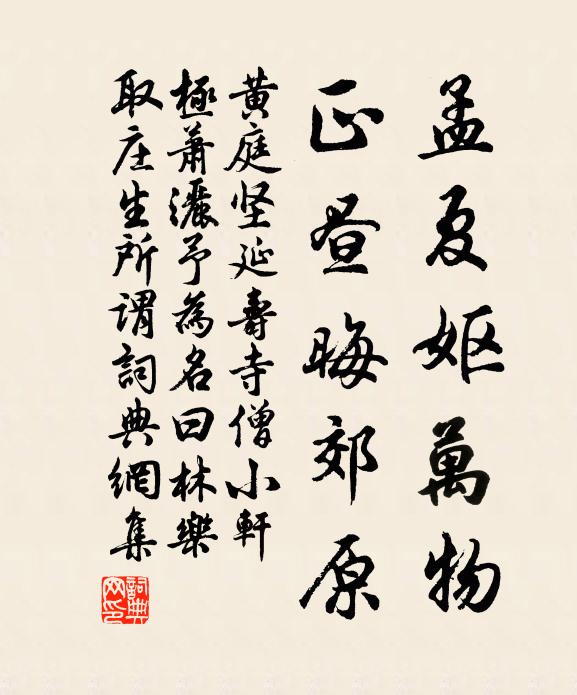 孟夏妪萬物
正昼晦郊原
黄庭坚延壽寺僧小軒
極蕭灑予為名曰林樂
取庄生所謂詞典網集
詞典網印